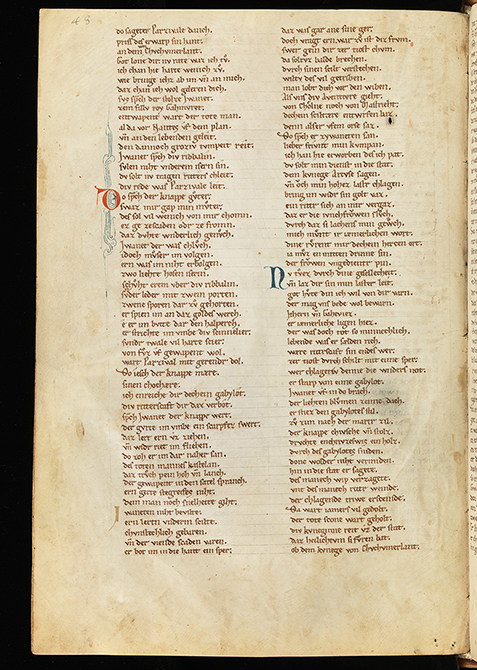 48
do sageter Parzivale danch.
pris des erwarp sin hant.
an dem Chvchymerlant.
Got lone dir nv rate war ich tv̊.
ich chan hie harte wenich zv̊.
wie bringe ichz ab im vn̄ an mich.
daz chan ich wol geleren dich.
svs sp̄ch der stolze Jwanet.
zem fillv roy Gahmvret.
entwapent wart der tote man.
al da vor Nantes vf dem plan.
vn̄ an den lebenden geleit.
den dannoch groziv tvmpeit reit.
Jwanet sp̄ch div ribbalin.
svlen niht vnderm isern sin.
dv solt nv tragen ritters chleit.
div rede was Parzivale leit.
Do sp̄ch der knappe gv̊ter.
swaz mir gap min mv̊ter.
des sol vil wenich von mir chomn.
ez ge ze scaden odr ze fromn.
daz dvhte wnderlich genv̊ch.
Jwanet der was chlv̊ch.
idoch mv̊ser im volgen.
ern was im niht erbolgen.
zwo liehte hosen iserin.
schv̊ht erem vber div ribbalin.
svnder leder mit zwein porten.
zwene sporen dar zv̊ gehorten.
er spien im an daz goldes werch.
e er im bvtte dar den halsperch.
er strichte im vmbe div scinnelier.
svnder twale vil harte scier.
von fv̊z vf gewapent wol.
wart Parzival mit gerender dol.
So iesch der knappe mære.
sinen chochære.
ich enreiche dir dechein gabylot.
div ritterscaft dir daz verbot.
sp̄ch Jwanet der knappe wert.
der gvrte im vmbe ein scarpfez swert.
daz lert ern vz ziehen.
vn̄ widr riet im fliehen.
do zoh er im dar naher san.
des toten mannes kastelan.
daz trv̊ch pein hoh vn̄ lanch.
der gewapent in den satel spranch.
ern gerte stegreifes niht.
dem man noch snelheite giht.
Jwaneten niht bevilte.
ern lerten vnderm scilte.
chvnstechlich gebaren.
vn̄ der viende scaden varen.
er bot im in die hant ein sper.
daz was gar ane sine ger.
doch vragt ern. war zv̊ ist diz frvm.
swer gein dir zer tiost chvm.
da soltvz balde brechen.
dvrch sinen scilt verstechen.
wiltv des vil getriben.
man lobt dich vor den wiben.
Als vns div aventivre giht.
von Chölne noch von Mastrieht.
dechein sciltære entwrfen baz.
denn alser vfem orse saz.
Do sp̄ch er zywaneten san.
lieber frivnt min kvmpan.
ich han hie erworben des ich pat.
dv solt min dienst in die stat.
dem kvnege Artvse sagen.
vn̄ och min hohez laster chlagen.
bring im widr sin golt vaz.
ein riter sich an mir vergaz.
daz er die ivnchfrowen slv̊ch.
dvrch daz si lachens min gewv̊ch.
mich mv̊ent ir iamerlichen wort.
dine rv̊rent mir dechein herzen ort.
ia mv̊z en mitten drinne sin.
der frowen vngedienter pin.
Nv tv̊ez dvrch dine gesellecheit.
vn̄ laz dir sin min laster leit.
got hv̊te din ich wil von dir varn.
der mag vns bede wol bewarn.
Jthern vn̄ Gaheviez.
er iæmerliche ligen liez.
der was doch tot so minnechlich.
lebende was er sælden rich.
wære ritterscaft sin endes wer.
zer tiost dvrch scilt mit eime sper.
wer chlagete denne die wnders not.
er starp von eime gabylot.
Jwanet vf in do brach.
der liehten blv̊men zeime dach.
er stiez den gabylotes stil.
zv̊ zim nach der marter zil.
der knappe chivsche vn̄ stolz.
drvchte en chrivzewis ein holz.
dvrch des gabylotes sniden.
done wolder niht vermiden.
hin in die stat er sagete.
des manech wip verzagete.
vnt des manech ritter weinde.
der chlagende triwe erscheinde.
Da wart iamers vil gidolt.
der tote scone wart geholt.
div kvneginne reit vz der stat.
daz heilichtvm si fv̊ren bat.
ob dem kvnege von Chvchvmerlant.